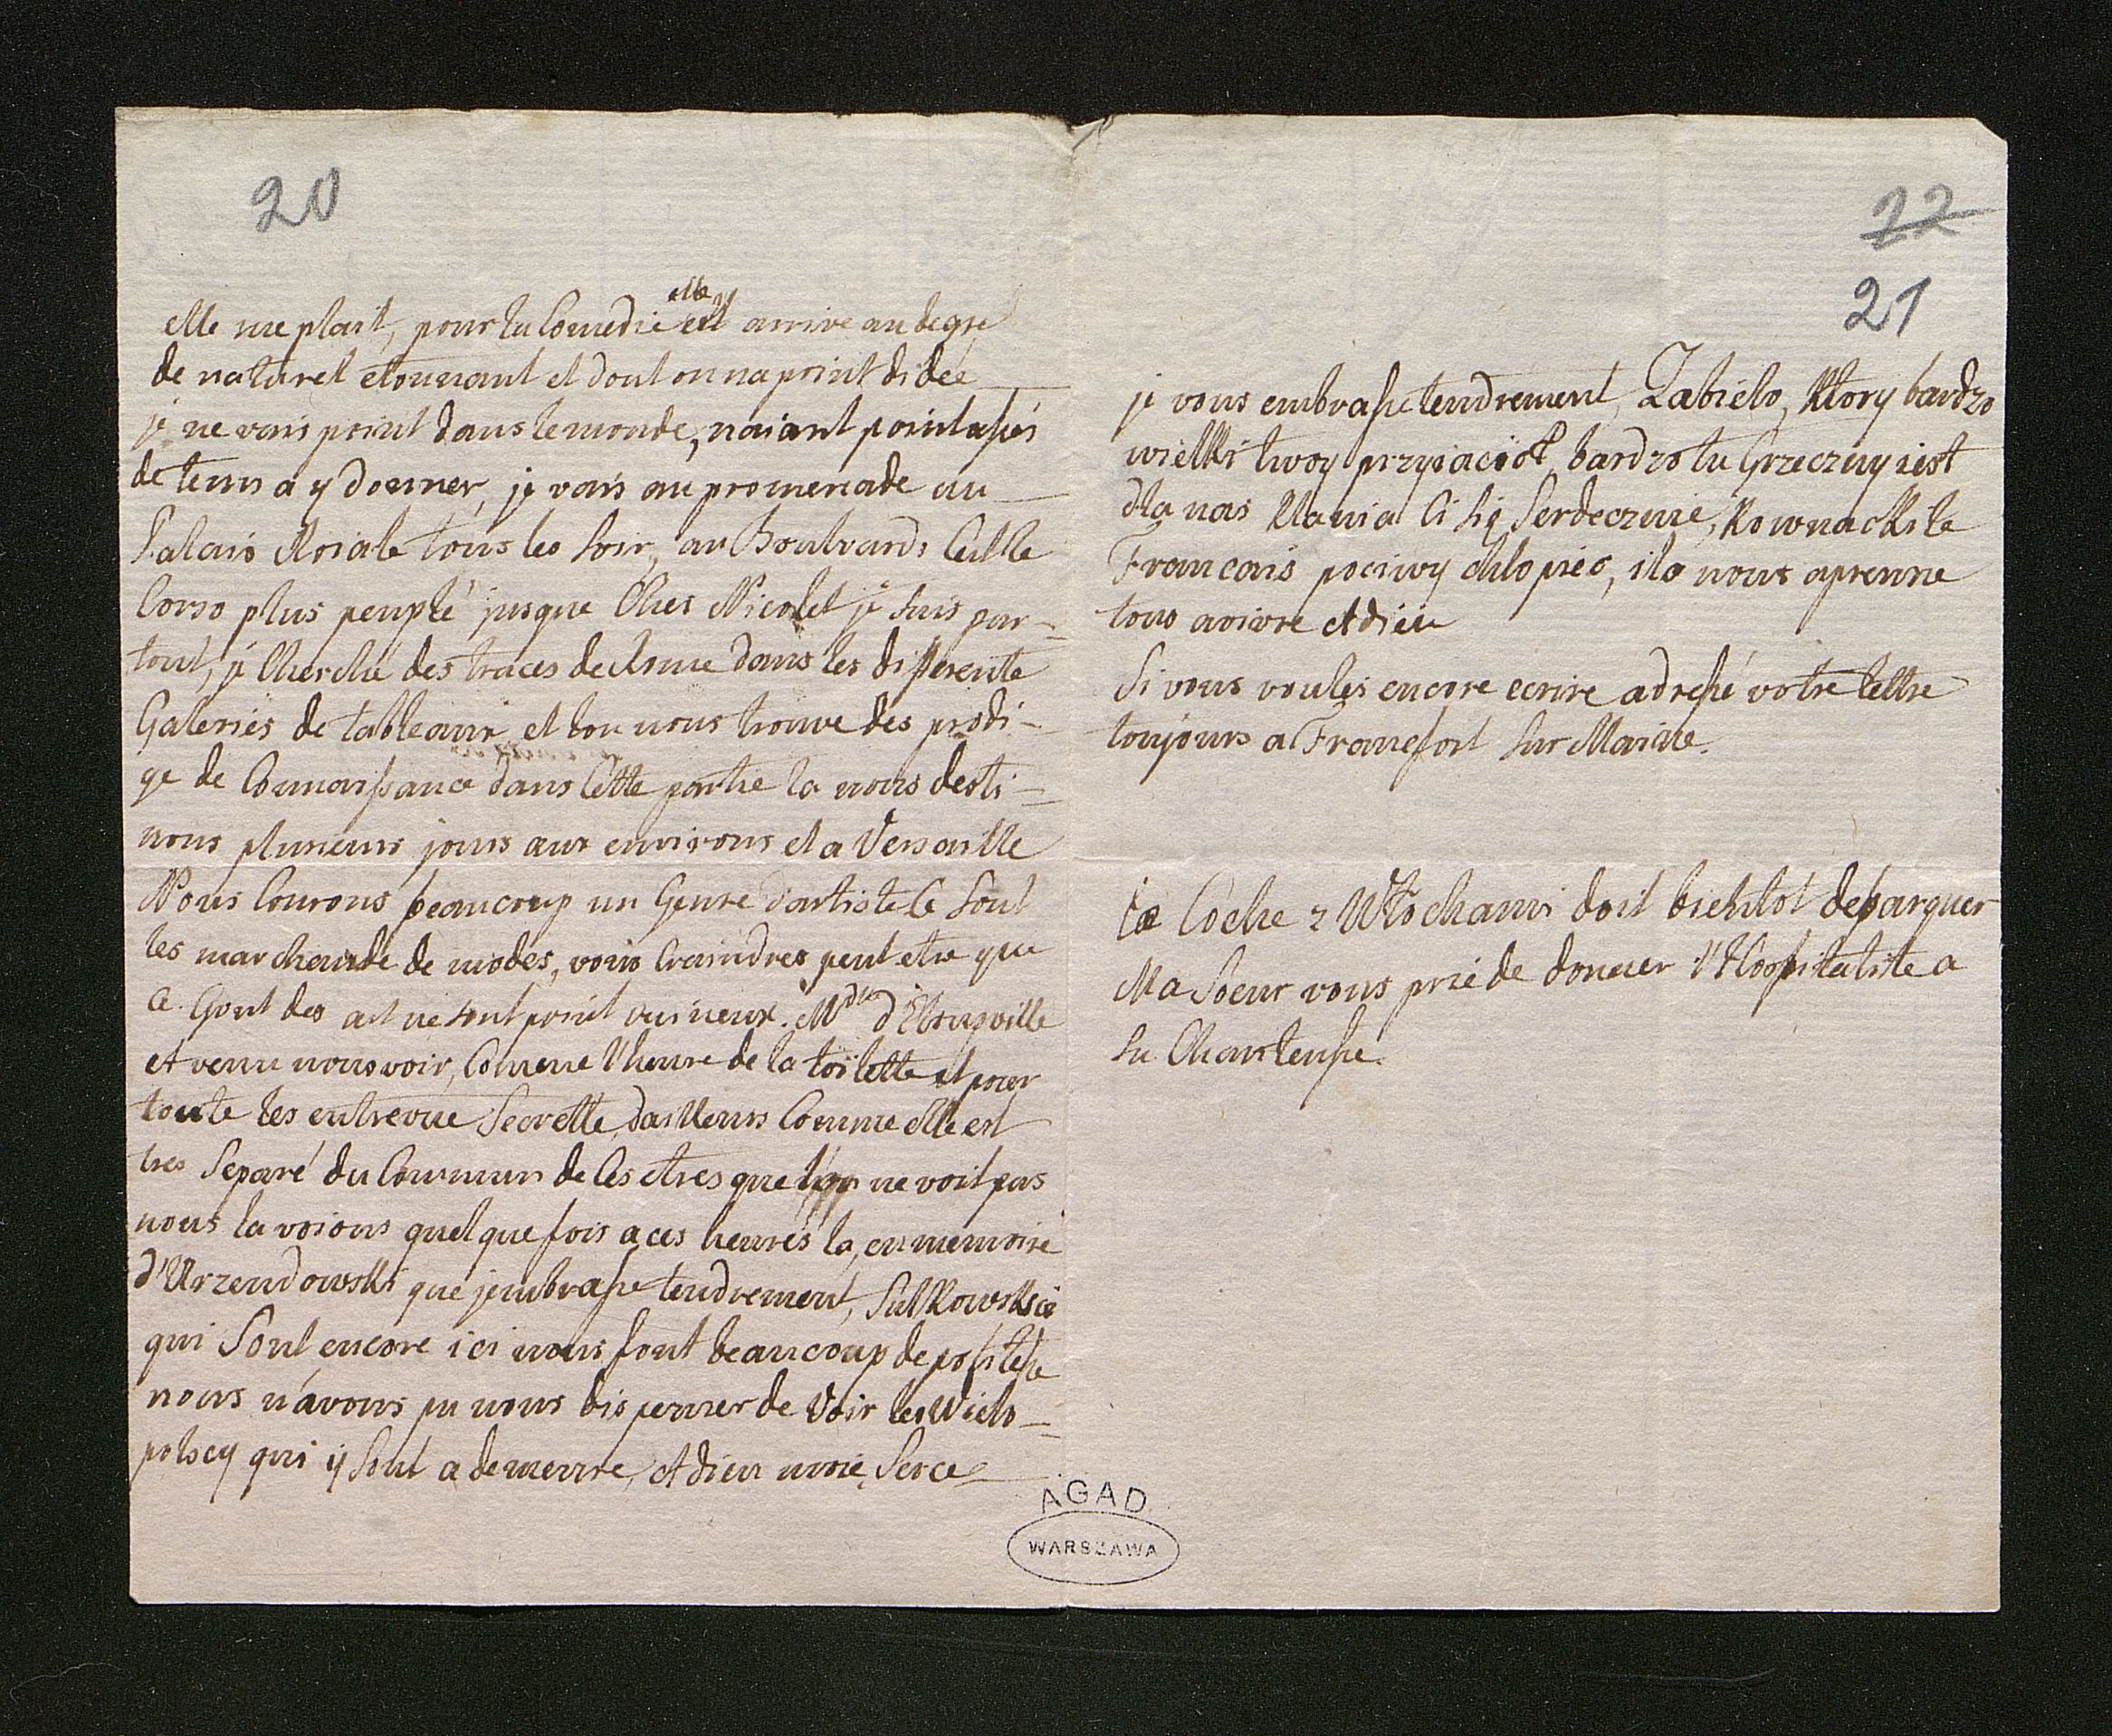 20
elle me plait, pour la Comedie elle est arrive au degre
de naturel etonnant et dont on na point didée
je ne vais point dans le monde, naiant point assés
de tems a y donner, je vais au promenade au
Palais Roiale tous les soir, au Boulvards Cest le
Corso plus peuplé jusque Ches Nicolet je suis par-
tout, je Cherche des traces de Rome dans les differente
Galeries de tableaux et lon nous trouve des prodi-
ge de Connaissance dans Cette partie la nous desti-
nons plusieurs jours aux environs et a Versaille
Nous Courons beaucoup un Genre d'artiste Ce sont
les marchande de modes, vous Craindres peut etre que
Ce Gout des art ne sont point ruineux. Mdlle d'Etrupville
et venu nous voir, Comme l'heure de la toilette et pour
toute les entrevue Secrette, dailleurs Comme elle est
tres Separé du Commun de Ces etres que l'on ne voit pas
nous la voions quelque fois a ces heures la, en memoire
d'Urzendowski que jembrasse tendrement, Sulkowskie
qui Sont encore ici nous font beaucoup de politesse
nous n'avons pu nous dispenser de Voir les Wielo-
polscy qui y sont a demeure, Adieu moie Serce
22
21
je vous embrasse tendrement, Zabielo, Ktory bardzo
wielki twoy przyiaciol, bardzo tu Grzeczny iest
dla nas Klania Ci się Serdecznie, Kownacki le
Francais pociwy chlopiec, il a nous aprenne
tous a vivre Adieu
Si vous voules encore ecrire adressé votre lettre
toujours a Francfort sur Maine.
Coche z Wlochami doit bientot debarquer
Ma Soeur vous prie de donner l'Hospitalite a
sa Chanteusse.
AGAD
WARSZAWA